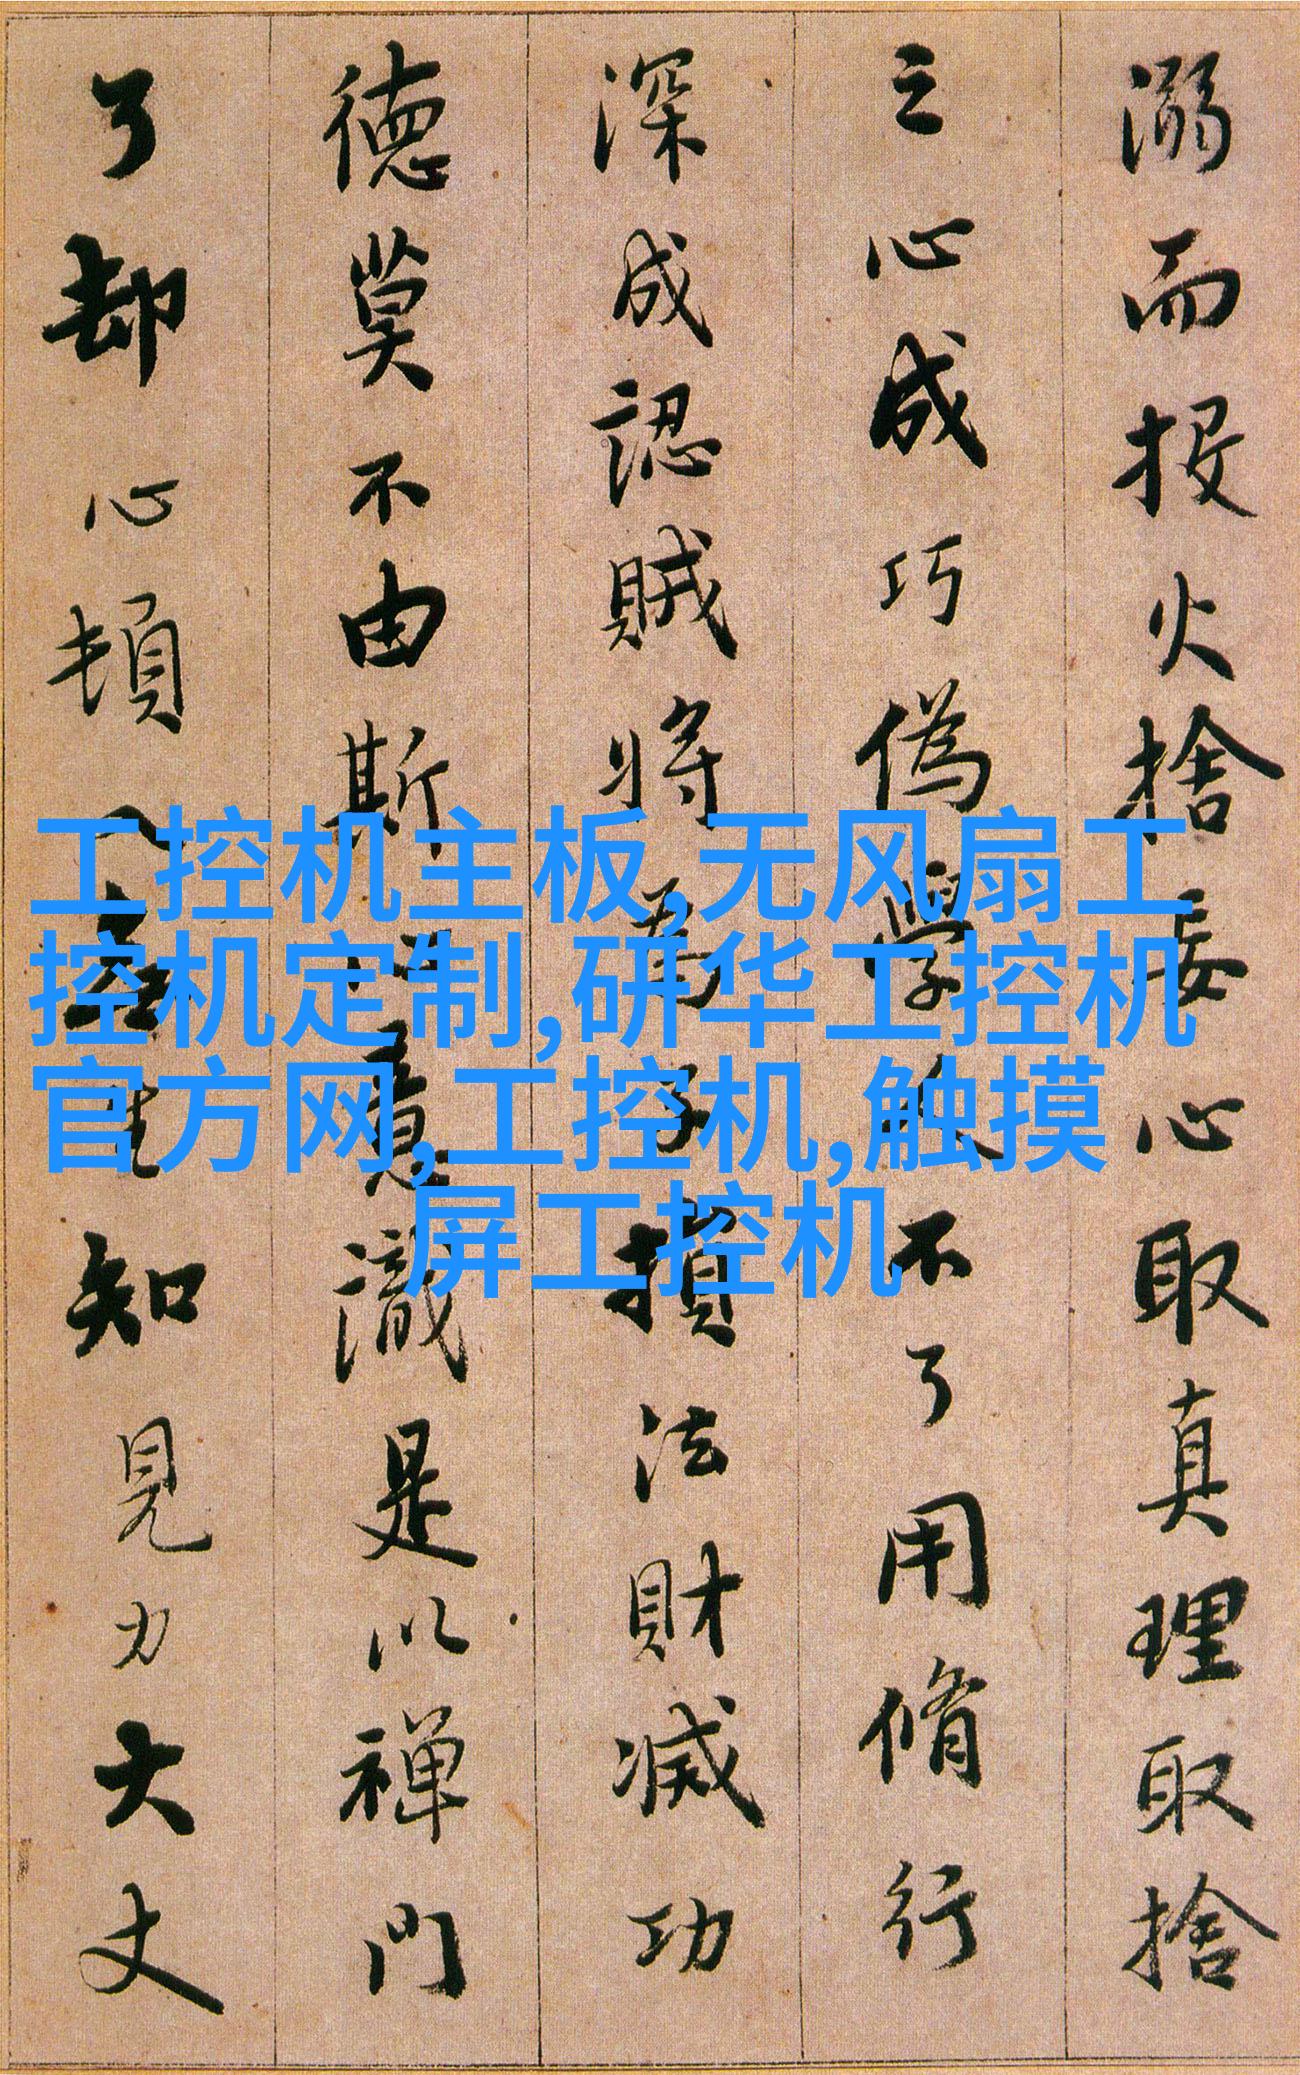 溺而投火捨妄心取真理取捨
之心成巧偽學人不了用脩行
深成認賊將為子損法財滅功
德莫不由斯心意識是以禪門
了却心頓入無生知見力大丈
工控机主板,无风扇工
控机定制,研华工控机
官方网,工控机,触摸
屏工控机